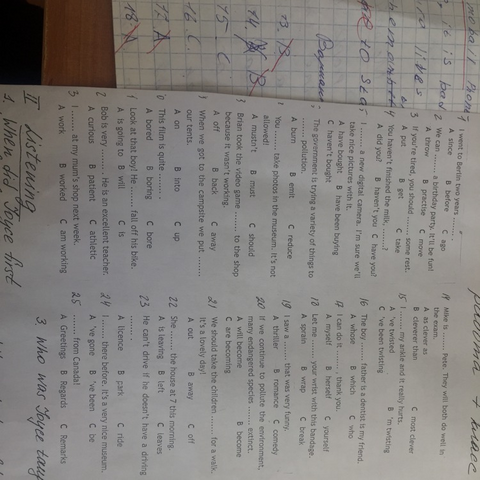 I went to Berlin two years ........
A since B before C ago
2 We can ........ a birthday party. It'll be fun!
A throw B practise C move
3 If you're tired, you should ........ some rest.
A put B get C take
4 You haven't finished the milk, ........?
A did you? B haven't you C have you?
a new digital camera. I'm sure we'll
take nice pictures with it.
A have bought B have been buying
C haven't bought
The government is trying a variety of things to
........ pollution.
A burn B emit C reduce
You ........ take photos in the museum. It's not
allowed!
A mustn't B must C should
Brian took the video game ........ to the shop
because it wasn't working.
A off B back C away
When we got to the campsite we put ........
our tents.
A on B into C up
This film is quite ........
A bored B boring C bore
Look at that boy! He ........ fall off his bike.
A is going to B will C is
Bob is very ........ He is an excellent teacher.
A curious B patient C athletic
I ........ at my mum's shop next week.
A work B worked C am working
14 Mike is ........ Pete. They will both do well in
the exam.
A as clever as C most clever
B cleverer than
15 I ........ my ankle and it really hurts.
A 've twisted B 'm twisting
C 've been twisting
16 The boy ........ father is a dentist, is my friend.
A whose B which C who
17 I can do it ........, thank you.
A myself B herself C yourself
18 Let me ........ your wrist with this bandage.
A sprain B wrap C break
19 I saw a ........ that was very funny.
A thriller B romance C comedy
20 If we continue to pollute the environment,
many endangered species ........ extinct.
A will become B become
C are becoming
21 We should take the children ........ for a walk.
It's a lovely day!
A out B away C off
22 She ........ the house at 7 this morning.
A is leaving B left C leaves
23 He can't drive if he doesn't have a driving
........
A licence B park C ride
24 I ........ there before. It's a very nice museum.
A 've gone B 've been C be
25 ........ from Canada!
A Greetings B Regards C Remarks
II Listening
1. When did Joyce first
3. Who was Joyce
13. B
14. B
15. C
16. C
17. A
18. A